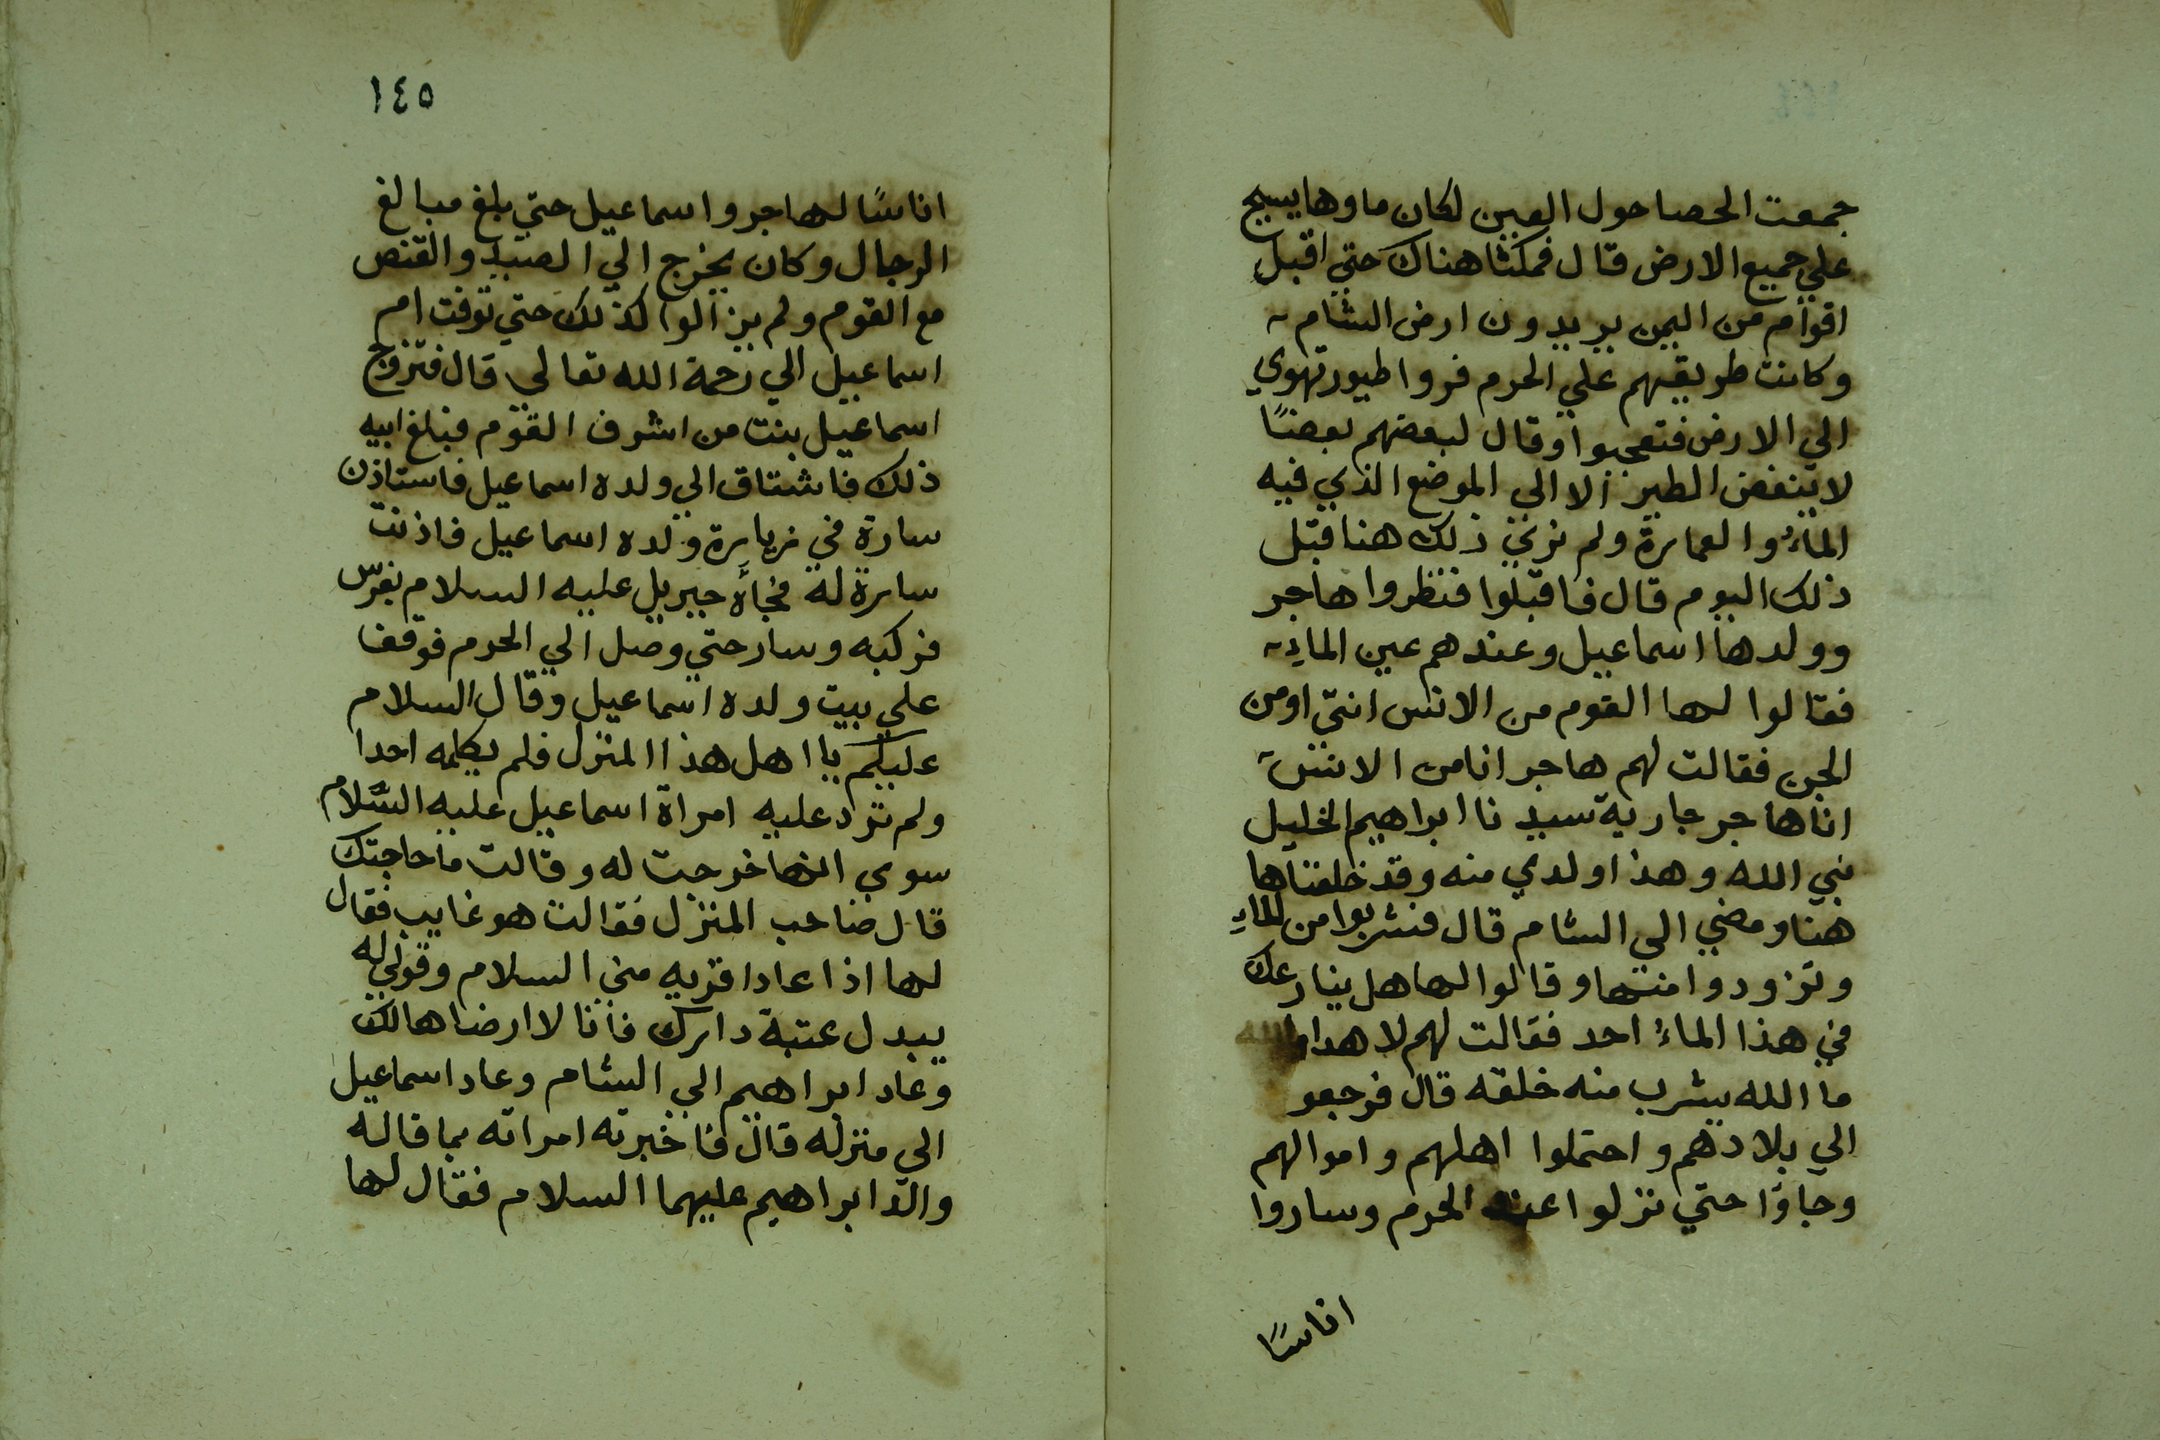 جمعت الحصا حول العين لكان ماوها يسيح
علي جميع الارض قال فمكثا هناك حتي اقبل
اقوام من اليمن يريدون ارض الشام
وكانت طريقهم علي الحرم فروا طيور تهوي
الي الارض فتعجبوا وقال لبعضهم بعضًا
لا ينغض الطير الا الي الموضع الذي فيه
الماءُ والعمارة ولم نري ذلك هنا قبل
ذلك اليوم قال فاقبلوا فنظروا هاجر
وولدها اسماعيل وعندهم عين الماءِ
فقالوا لها القوم من الانس انتي اومن
الجن فقالت لهم هاجر انا من الانس
انا هاجر جارية سيدنا ابراهيم الخليل
نبي الله وهذا ولدي منه وقد خلفناها
هنا ومضي الي الشام قال فشربوا من الماءِ
وتزودوا منها وقالوا لها هل ينازعك
في هذا الماءُ احد فقالت لهم لا هدا
ما الله يشرب منه خلقه قال فرجعو
الي بلادهم واحتملوا اهلهم واموالهم
وجاوًا حتي نزلوا عند الحرم وساروا
اناسًا
١٤٥
اناسًا لهاجر واسماعيل حتي بلغ مبالغ
الرجال وكان يخرج الي الصيد والقنص
مع القوم ولم يزالوا كذلك حتي توفت ام
اسماعيل الي رحمة الله تعالي قال فتزوج
اسماعيل بنت من اشرف القوم فبلغ ابيه
ذلك فاشتاق الي ولده اسماعيل فاستاذن
سارة في زيارة ولده اسماعيل فاذنت
سارة له فجأه جبريل عليه السلام بفرس
فركبه وسار حتي وصل الي الحرم فوقفا
علي بيت ولده اسماعيل وقال السلام
عليكم يا اهل هذا المنزل فلم يكلمه احدا
ولم ترد عليه امراة اسماعيل عليه السلام
سوي انها خرجت له وقالت ما حاجتك
قال صاحب المنزل فقالت هو غايب فقال
لها اذا عادا قريه مني السلام وقولي له
يبدل عتبة دارك فانا لا ارضاها لك
وعاد ابراهيم الي الشام وعاد اسماعيل
الي منزله قال فاخبرته امراته بما قاله
والد ابراهيم عليهما السلام فقال لها